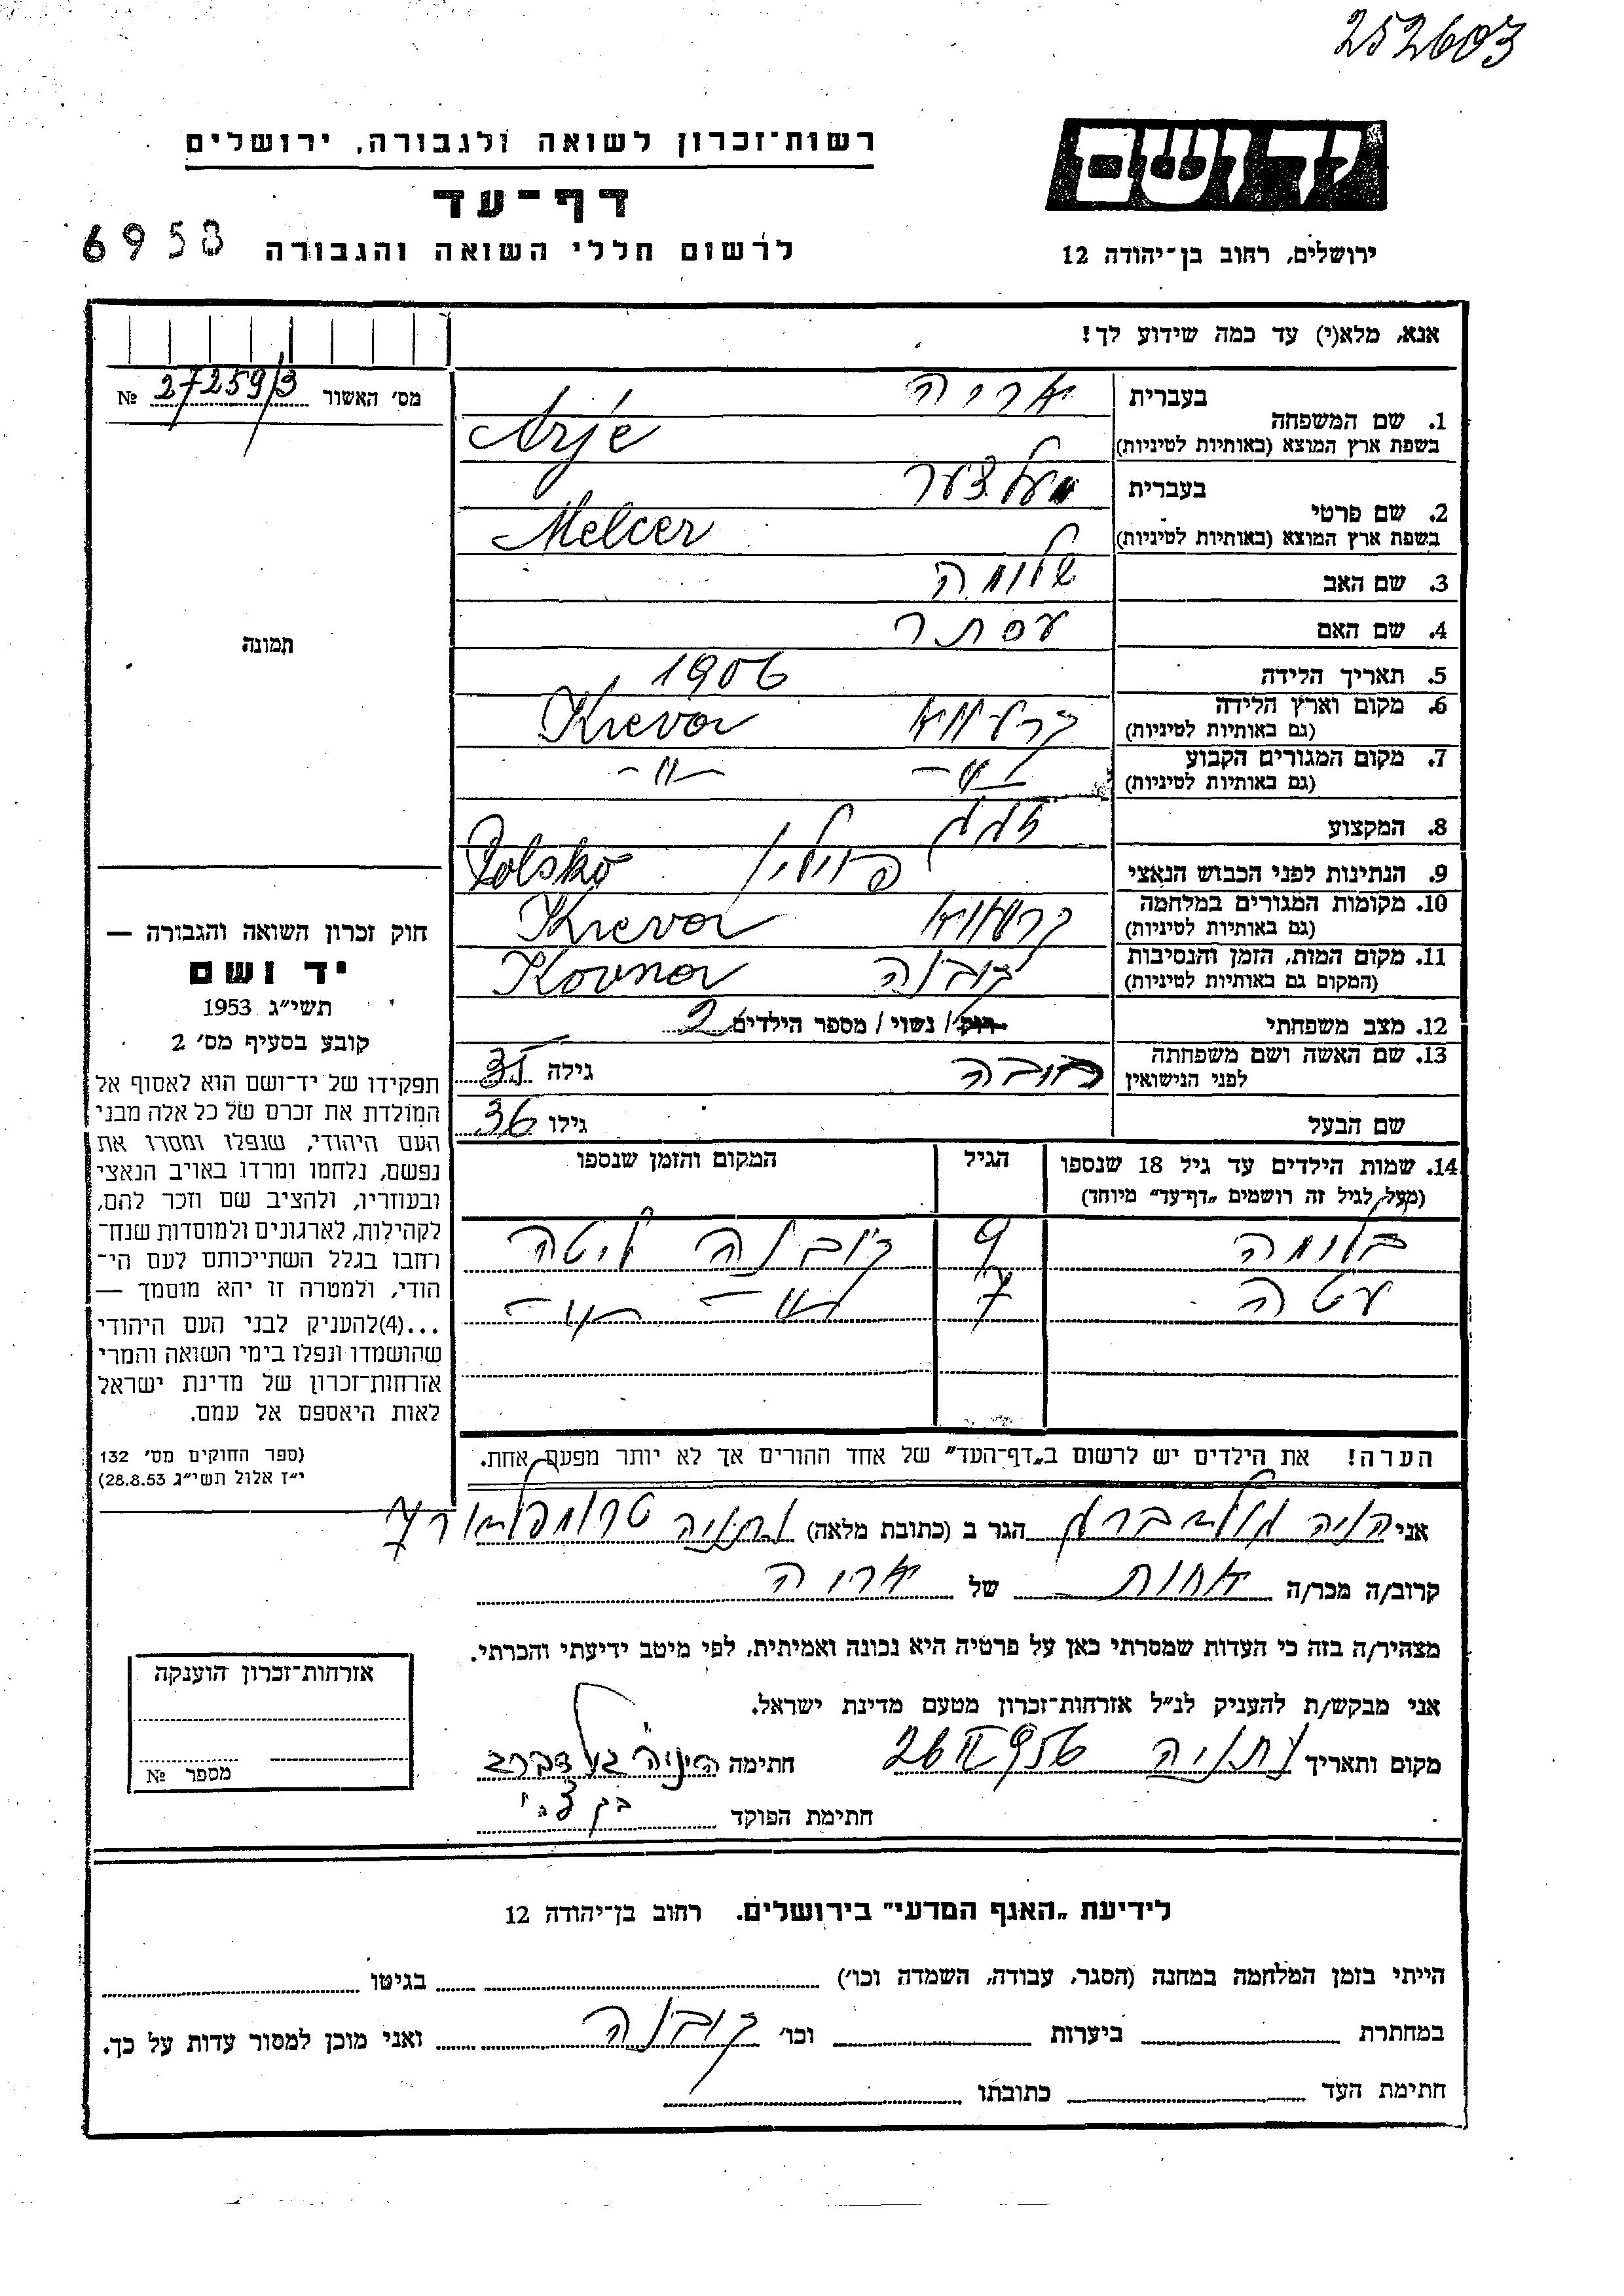 252603
יד ושם
רשות־זכרון לשואה ולגבורה, ירושלים
דף־עד
לרשום חללי השואה והגבורה
6958
ירושלים, רחוב בן־יהודה 12
אנא, מלא(י) עד כמה שידוע לך!
מס׳ האשור 27259/3 №
1. שם המשפחה
בעברית אריה
בשפת ארץ המוצא (באותיות לטיניות) Arje
2. שם פרטי
בעברית מעלצער
בשפת ארץ המוצא (באותיות לטיניות) Melcer
3. שם האב שלומה
4. שם האם עסתר
5. תאריך הלידה 1906
6. מקום וארץ הלידה
(גם באותיות לטיניות) קרעווא Krevo
7. מקום המגורים הקבוע
(גם באותיות לטיניות) -"- -"-
8. המקצוע
9. הנתינות לפני הכבוש הנאצי פוילין Polsko
10. מקומות המגורים במלחמה
(גם באותיות לטיניות) קרעווא Krevo
11. מקום המות, הזמן והנסיבות
(המקום גם באותיות לטיניות) קובנה Kovno
12. מצב משפחתי רווק / נשוי / מספר הילדים 2
13. שם האשה ושם משפחתה
לפני הנישואין גילה 35
שם הבעל גילו 36
14. שמות הילדים עד גיל 18 שנספו
(מעל לגיל זה רושמים „דף־עד״ מיוחד)
הגיל
המקום והזמן שנספו
בלומה 9 קובנה ליטה
עטה 7 -"- -"-
הערה! את הילדים יש לרשום ב„דף־העד״ של אחד ההורים אך לא יותר מפעם אחת.
תמונה
חוק זכרון השואה והגבורה —
יד ושם
תשי״ג 1953
קובע בסעיף מס׳ 2
תפקידו של יד־ושם הוא לאסוף אל
המולדת את זכרם של כל אלה מבני
העם היהודי, שנפלו ומסרו את
נפשם, נלחמו ומרדו באויב הנאצי
ובעוזריו, ולהציב שם וזכר להם,
לקהילות, לארגונים ולמוסדות שנח־
רחבו בגלל השתייכותם לעם הי־
הודי, ולמטרה זו יהא מוסמך —
...(4)להעניק לבני העם היהודי
שהושמדו ונפלו בימי השואה והמרי
אזרחות־זכרון של מדינת ישראל
לאות היאספם אל עמם.
(ספר החוקים מס׳ 132
י״ז אלול תשי״ג 28.8.53)
אני חיה גולדברג הגר ב (כתובת מלאה) נתניה
קרוב/ה מכר/ה אחות של אריה
מצהיר/ה בזה כי העדות שמסרתי כאן על פרטיה היא נכונה ואמיתית, לפי מיטב ידיעתי והכרתי.
אני מבקש/ת להעניק לנ״ל אזרחות־זכרון מטעם מדינת ישראל.
מקום ותאריך נתניה 26 II 956 חתימה גולדברג
חתימת הפוקד
אזרחות־זכרון הוענקה
מספר №
לידיעת „האגף המדעי״ בירושלים. רחוב בן־יהודה 12
הייתי בזמן המלחמה במחנה (הסגר, עבודה, השמדה וכו׳) בגיטו
במחתרת ביערות וכו׳ קובנה ואני מוכן למסור עדות על כך.
חתימת העד כתובתו